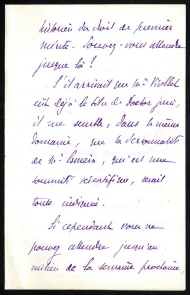 historien du droit de premier
mérite. Pouvez-vous attendre
jusque là ?
S'il arrivait que Mr Viollet
eût déjà le titre de Doctor juris,
il me semble, dans le même
domaine, que la personnalité
de Mr, qui est une
sommité scientifique, serait
toute indiquée.
Si cependant vous ne
pouvez attendre jusqu'au
milieu de la semaine prochaine